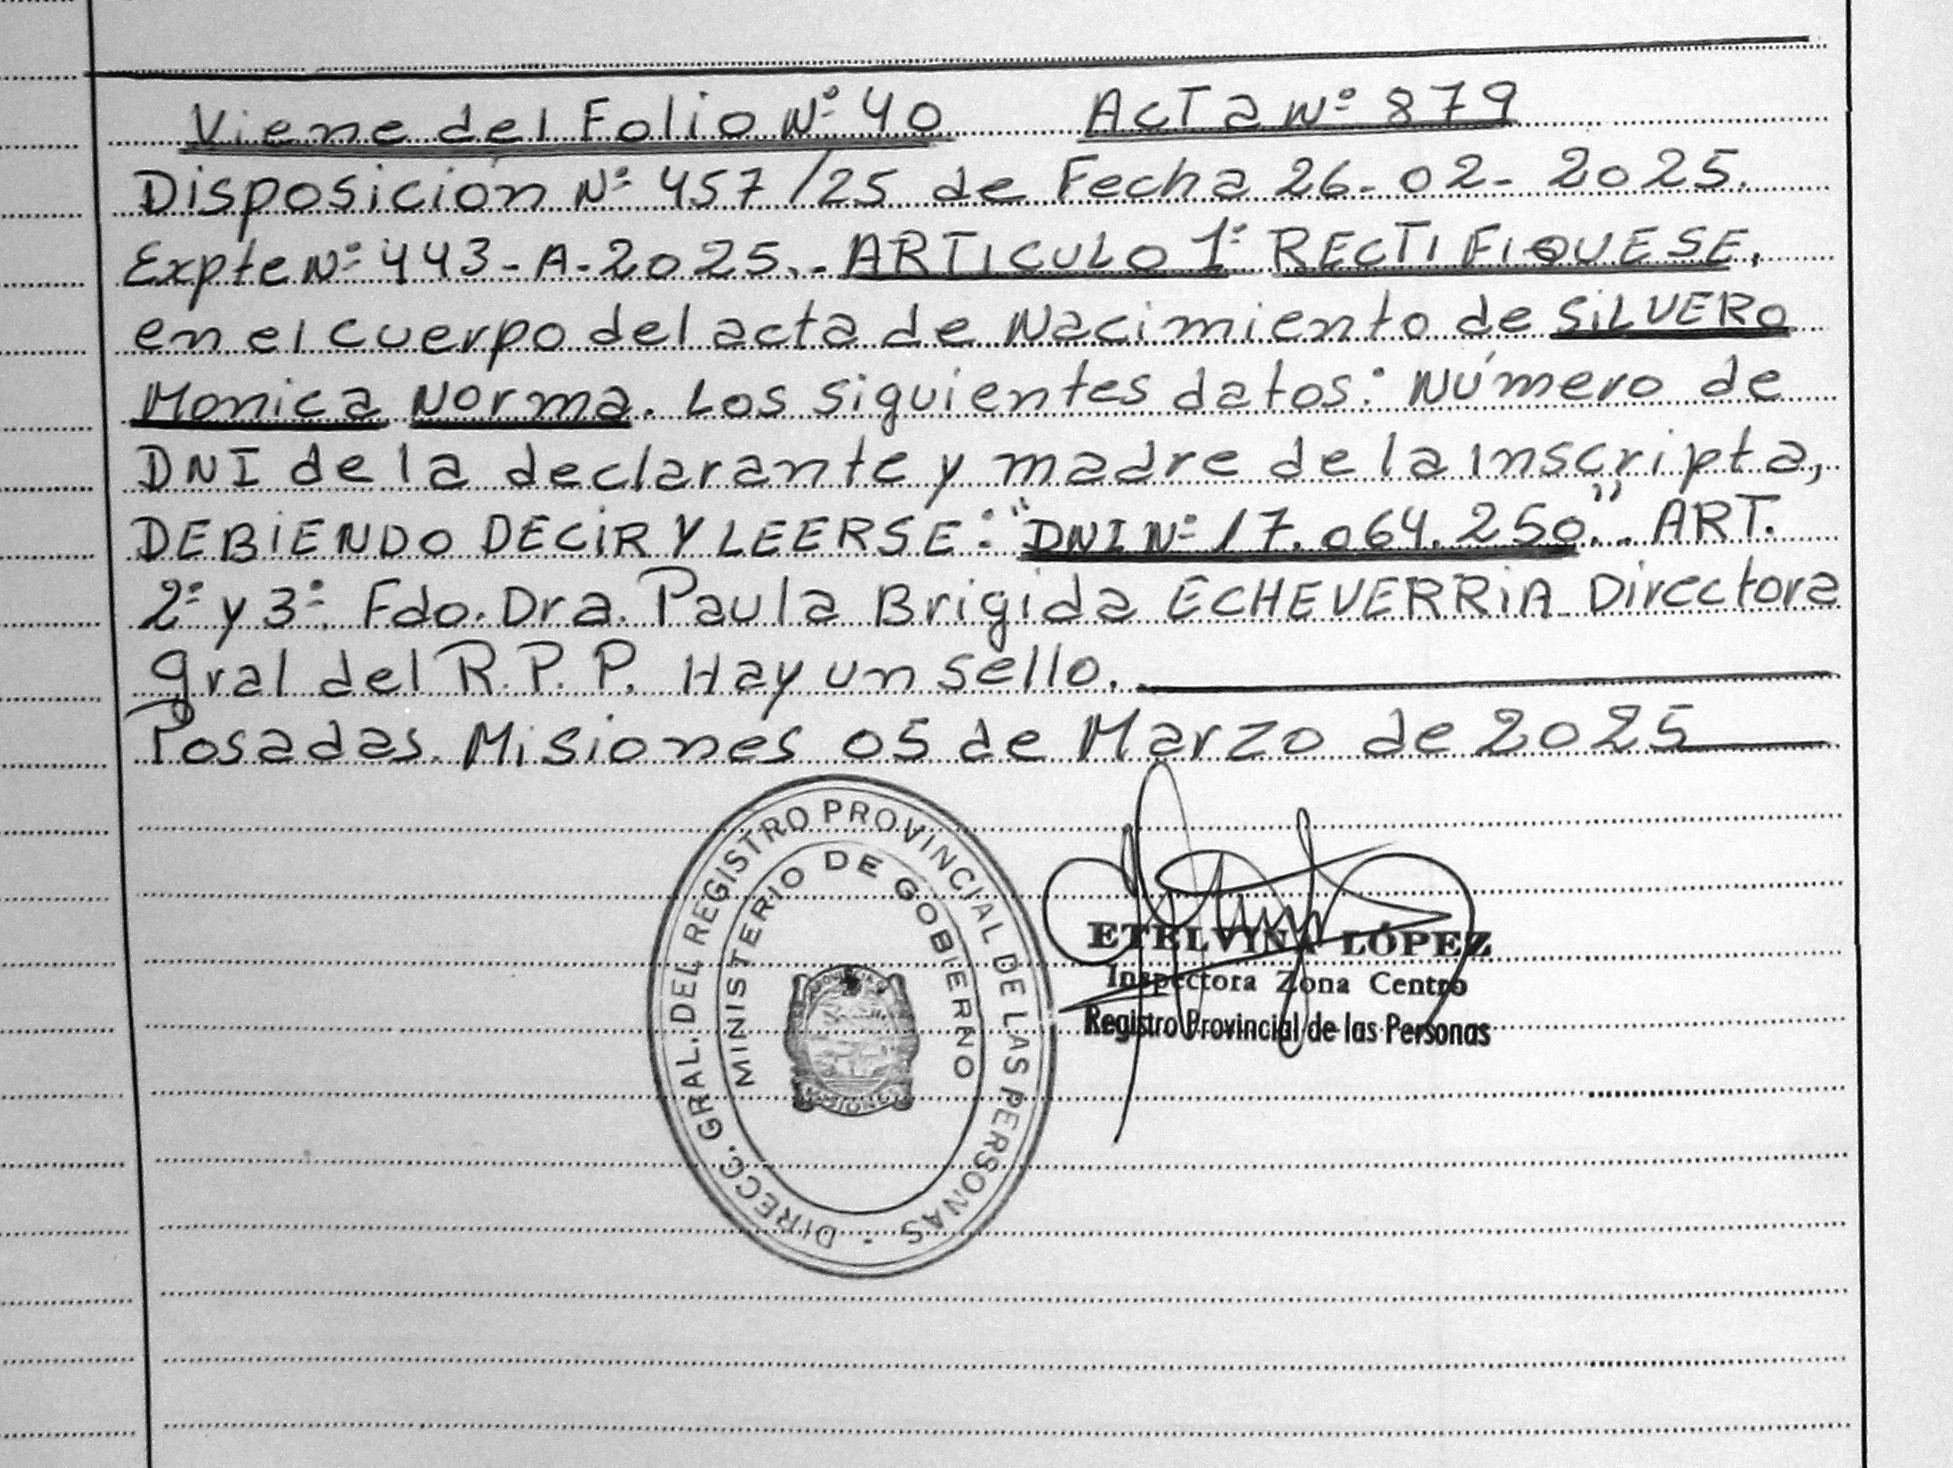 Viene del Folio Nº 40 Acta Nº 879
Disposición Nº 457/25 de Fecha 26-02-2025.
Expte Nº 443-A-2025.- ARTICULO 1º RECTIFIQUESE,
en el cuerpo del acta de Nacimiento de SiLVERO
Monica Norma. Los siguientes datos: Número de
DNI de la declarante y madre de la inscripta,
DEBiENDO DECiR Y LEERSE: "DNI Nº 17.064.250". ART.
2º y 3º. Fdo. Dra. Paula Brigida ECHEVERRiA Directora
gral del R.P.P. Hay un sello.
Posadas. Misiones 05 de Marzo de 2025
DIRECC. GRAL. DEL REGISTRO PROVINCIAL DE LAS PERSONAS
MINISTERIO DE GOBIERNO
PROVINCIA DE
MISIONES
ETELVINA LÓPEZ
Inspectora Zona Centro
Registro Provincial de las Personas